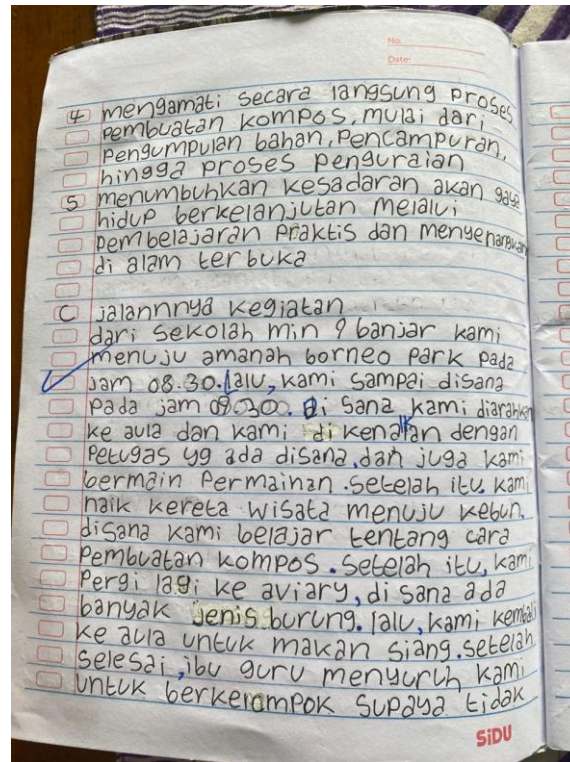 No.
Date:
4 mengamati secara langsung proses
pembuatan kompos, mulai dari
pengumpulan bahan, pencampuran,
hingga proses penguraian
5 menumbuhkan kesadaran akan gaya
hidup berkelanjutan melalui
pembelajaran praktis dan menyenangkan
di alam terbuka
C jalannnya kegiatan
dari sekolah min 9 banjar kami
menuju amanah borneo park pada
jam 08.30. lalu, kami sampai disana
pada jam 09.30. di sana kami diarahkan
ke aula dan kami di kenalkan dengan
petugas yg ada disana, dan juga kami
bermain permainan. setelah itu, kami
naik kereta wisata menuju kebun.
disana kami belajar tentang cara
pembuatan kompos. setelah itu, kami
pergi lagi ke aviary, di sana ada
banyak jenis burung. lalu, kami kembali
ke aula untuk makan siang. setelah
selesai, ibu guru menyuruh kami
untuk berkelompok supaya tidak
SiDU